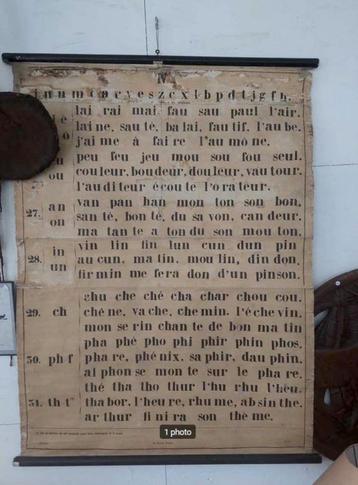 i n u m o a r v e s z c x l b p d t j g f h.
lai rai mai fau sau paul l'air.
lai ne, sau té, ba lai, fau tif. l'au be.
j'ai me à fai re l'au mô ne.
eu
ou
peu feu jeu mou sou fou seul.
cou leur, bou deur, dou leur, vau tour.
l'au di teur é cou te l'o ra teur.
27. an
on
van pan ban mon ton son bon,
san té, bon té, du sa von, can deur.
ma tan te a ton du son mou ton,
28. in
un
vin lin fin lun cun dun pin
au cun, ma tin, mou lin, din don,
fir min me fera don d'un pinson.
29. ch
chu che ché cha char chou cou.
chê ne, va che, che min. l'é che vin.
mon se rin chan te de bon ma tin
30. ph f
pha phé pho phi phir phin phos.
pha re, phé nix, sa phir, dau phin,
al phon se mon te sur le pha re.
31. th t
thé tha tho thur l'hu rhu l'heu.
tha bor, l'heu re, rhu me, ab sin the.
ar thur fi ni ra son thè me.
1 photo